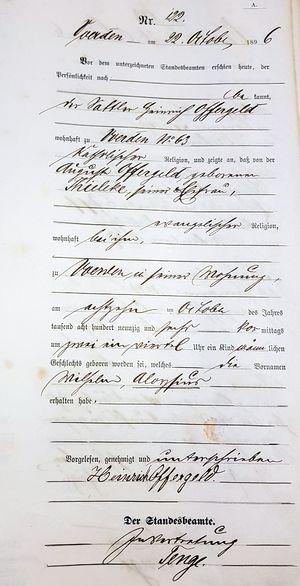 A.
Nr. 122.
Voerden am 22. October 1896
Vor dem unterzeichneten Standesbeamten erschien heute, der
Persönlichkeit nach
be kannt,
der Sattler Heinrich Offergeld
wohnhaft zu Voerden No 63
katholischer Religion, und zeigte an, daß von der
August Offergeld geborenen
Thielcke, seiner Ehefrau,
evangelischer Religion,
wohnhaft bei ihm,
zu Voerden in seiner Wohnung,
am achtzehn ten October des Jahres
tausend acht hundert neunzig und sechs Vor mittags
um zwei ein viertel Uhr ein Kind männ lichen
Geschlechts geboren worden sei, welches die Vornamen
Wilhelm, Aloysius
erhalten habe.
Vorgelesen, genehmigt und unterschrieben
Heinrich Offergeld.
Der Standesbeamte.
In Vertretung
Tenge.